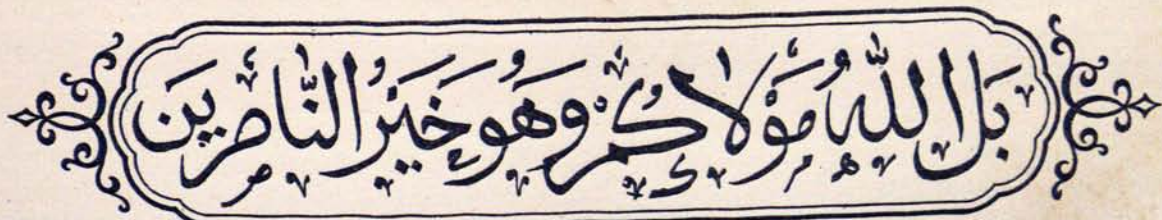 بَلِ اللّٰهُ مَوْلَاكُمْ وَهُوَ خَيْرُ النَّاصِرِينَ